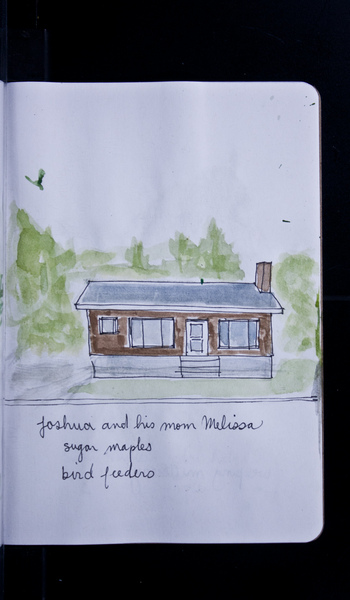 Joshua and his mom Melissa
sugar maples
bird feeders